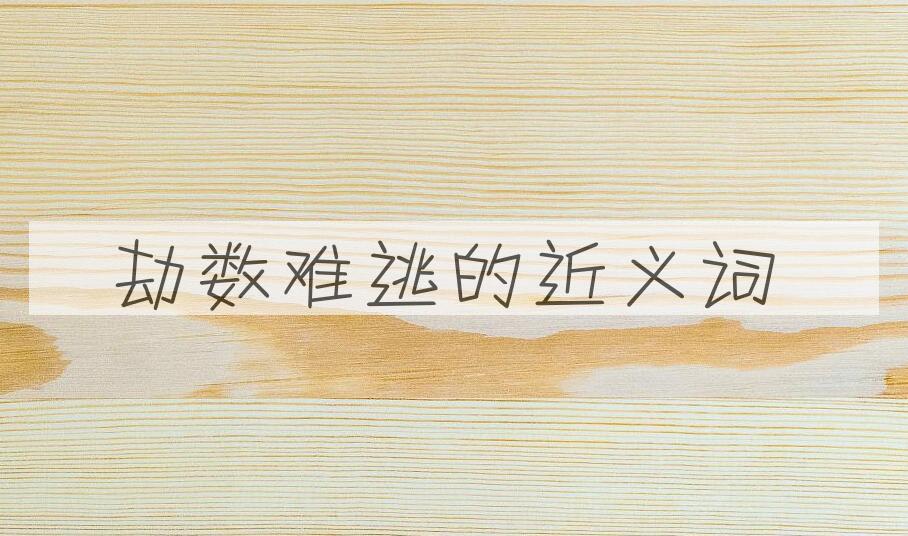 劫数难逃的近义词